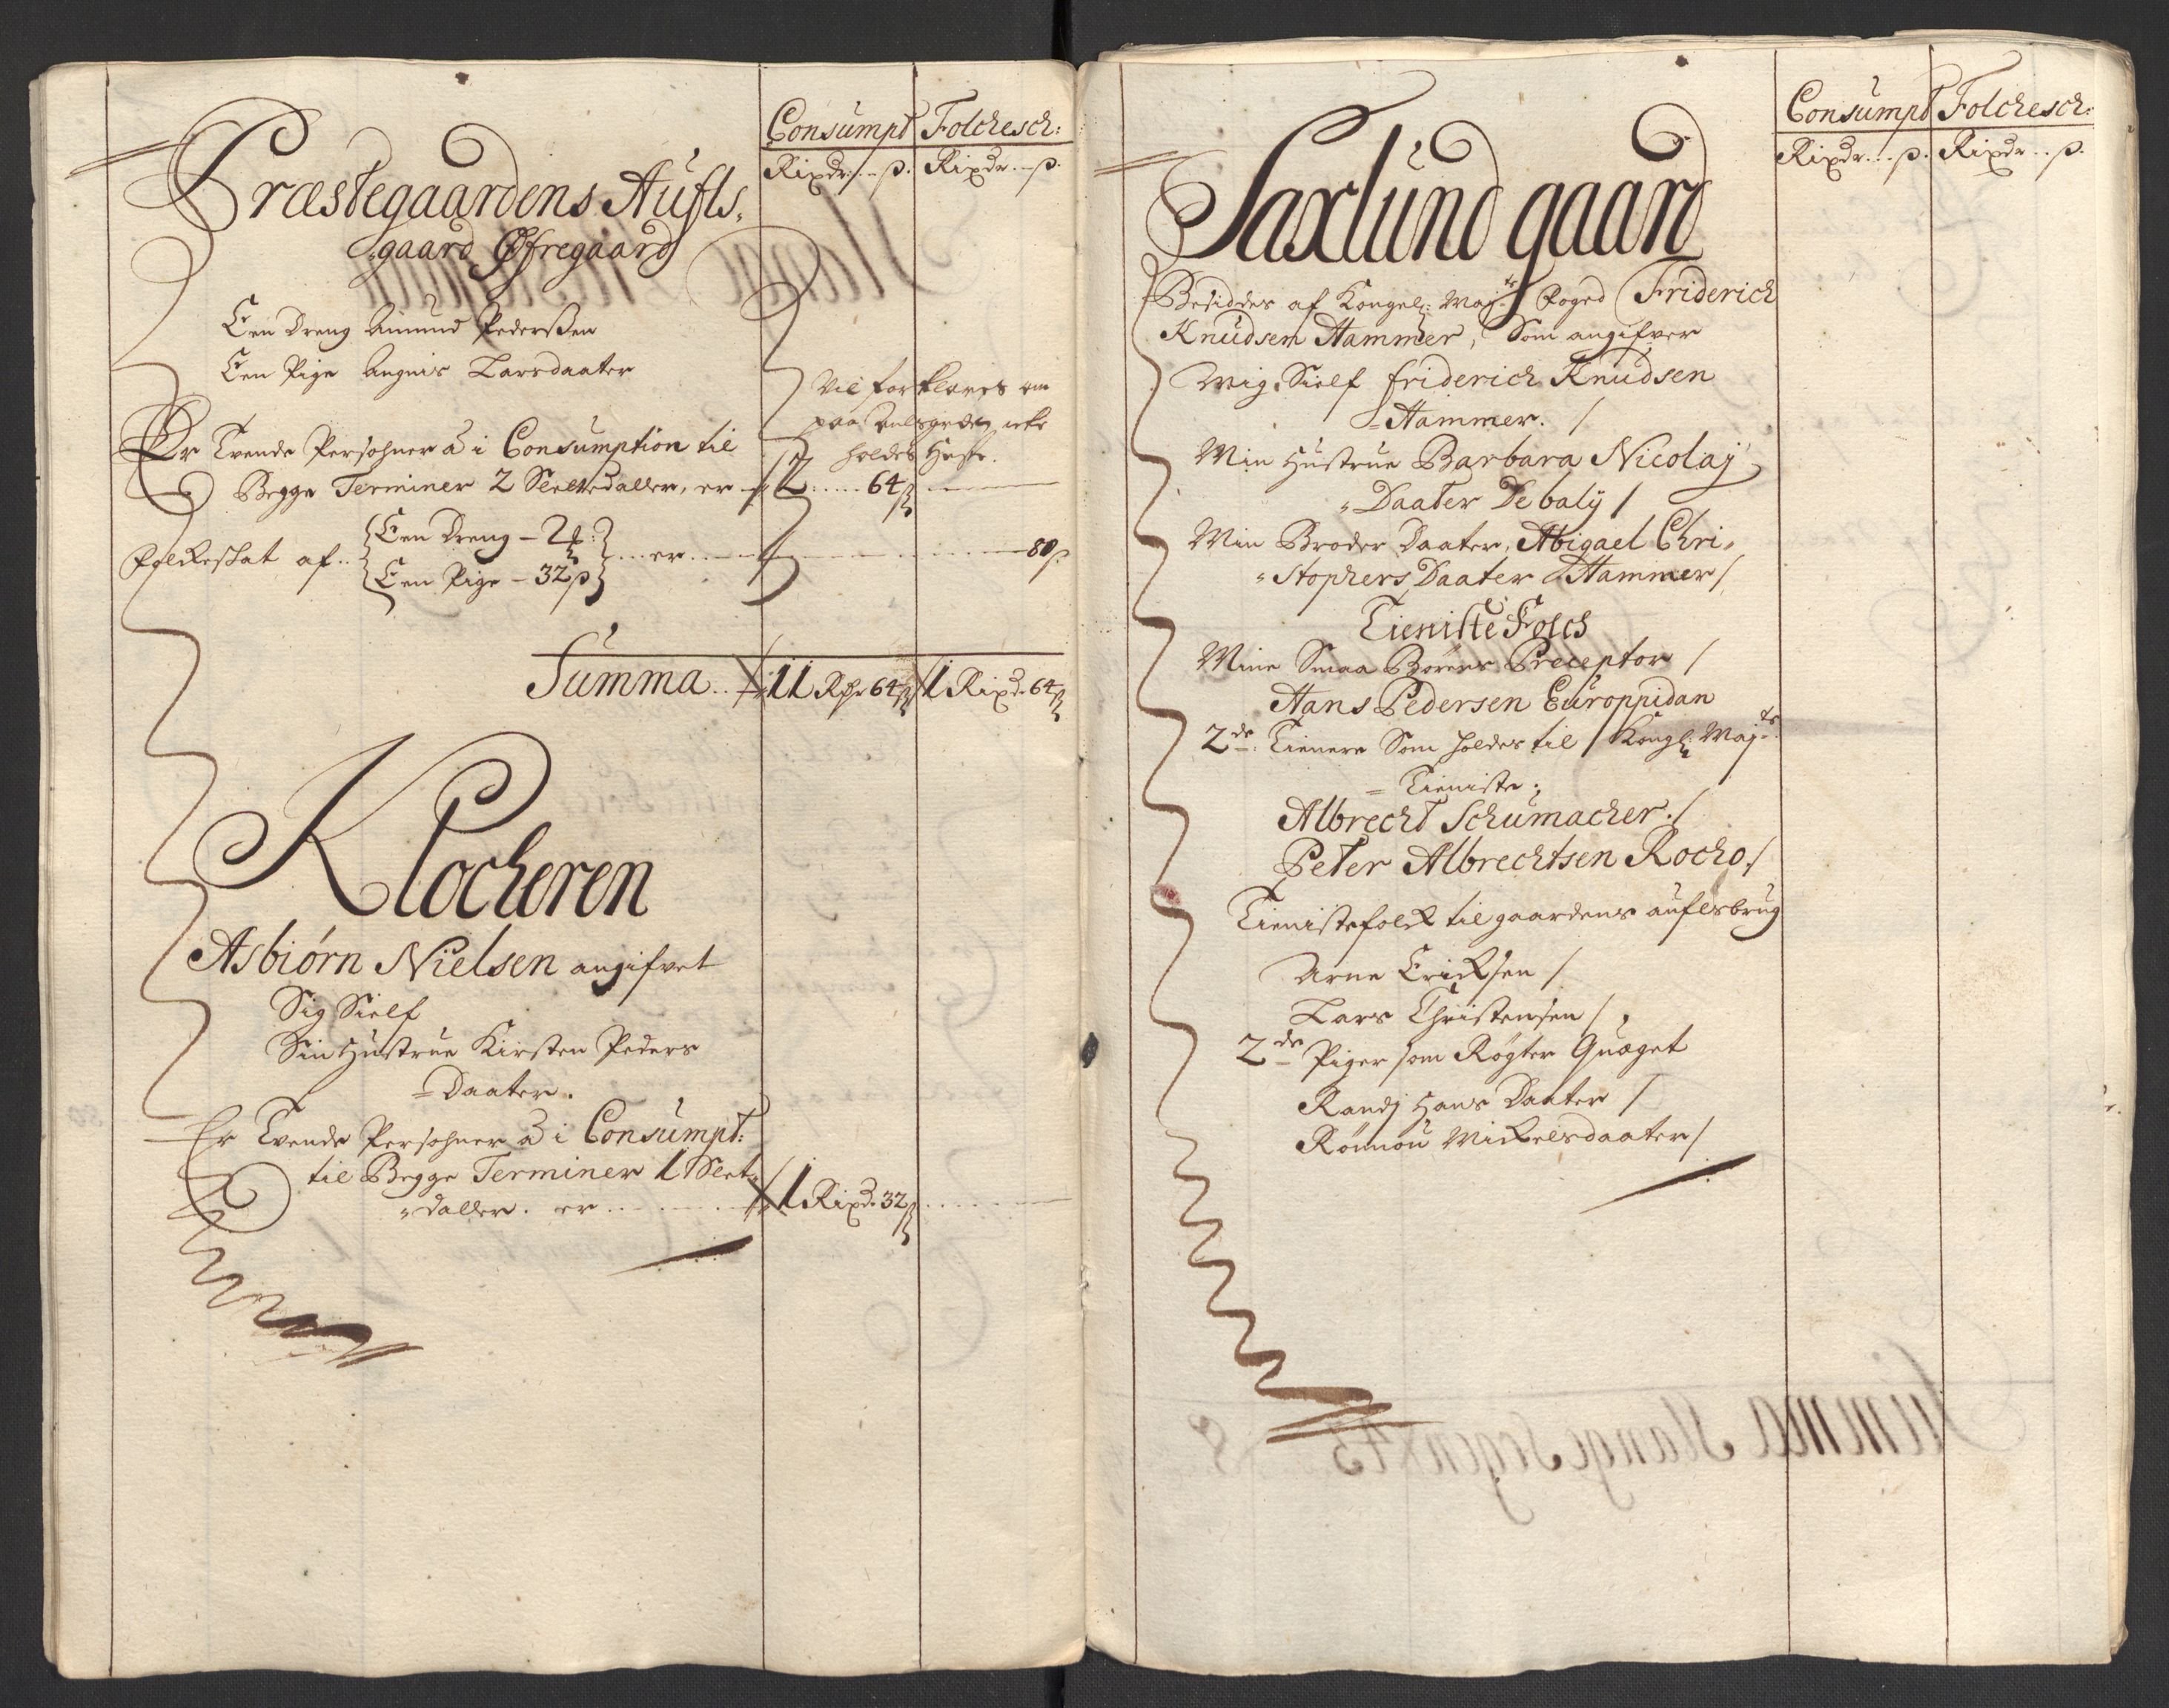 Consumpt Folchesch:
Rixdr...ß. Rixdr...ß.
Præstegaardens Aufls,
gaard Øfregaard
Een Dreng Amund Pederssen
Een Pige Angnis Larsdaater
Vil forklares om
paa Aulsgrden icke
holdes Huse.
Er Tvende Persohner á i Consumption til
Begge Terminer 2 Slettedaller, er 2....64ß
Folkeskat af.. Een Dreng - 2¼: ...er..... 80ß
Een Pige - 32ß
Summa.. 11 Rdr 64ß 1 Rixd. 64ß
Klocheren
Asbiørn Nielsen angifvet
Sig Sielf
Sin Hustrue Kirsten Peders
=Daater.
Er Tvende Persohner á i Consumpt:
til Begge Terminer 1 Slet,
"daller. er ....... 1 Rixd. 32ß
Consumpt Folchesch:
Rixdr...ß. Rixdr...ß.
Saxlund gaard
Besiddes af Kongel: Mayts Foged Friderich
Knudsen Hammer, Som angifver
Mig Sielf friderich Knudsen
=Hammer. /
Min Hustrue Barbara Nicolaj
"Daater Debalÿ /
Min Broder Daater, Abigael Chri,
"stophers Daater Hammer /
Tieniste Folch
Mine Smaa Børens Preceptor /
Hans Pedersen Europpidan
2de: Tienere Som holdes til Kongl: Mayts
= Tieniste:
Albrecht Schumacher. /
Peter Albrechtsen Rocho /
Tienistefolk til gaardens auflsbrug
Arne Ericksen /
Lars Christensen /
2de Piger som Røgter Quæget
Randj Hans Daater /
Rønnou Mickelsdaater /